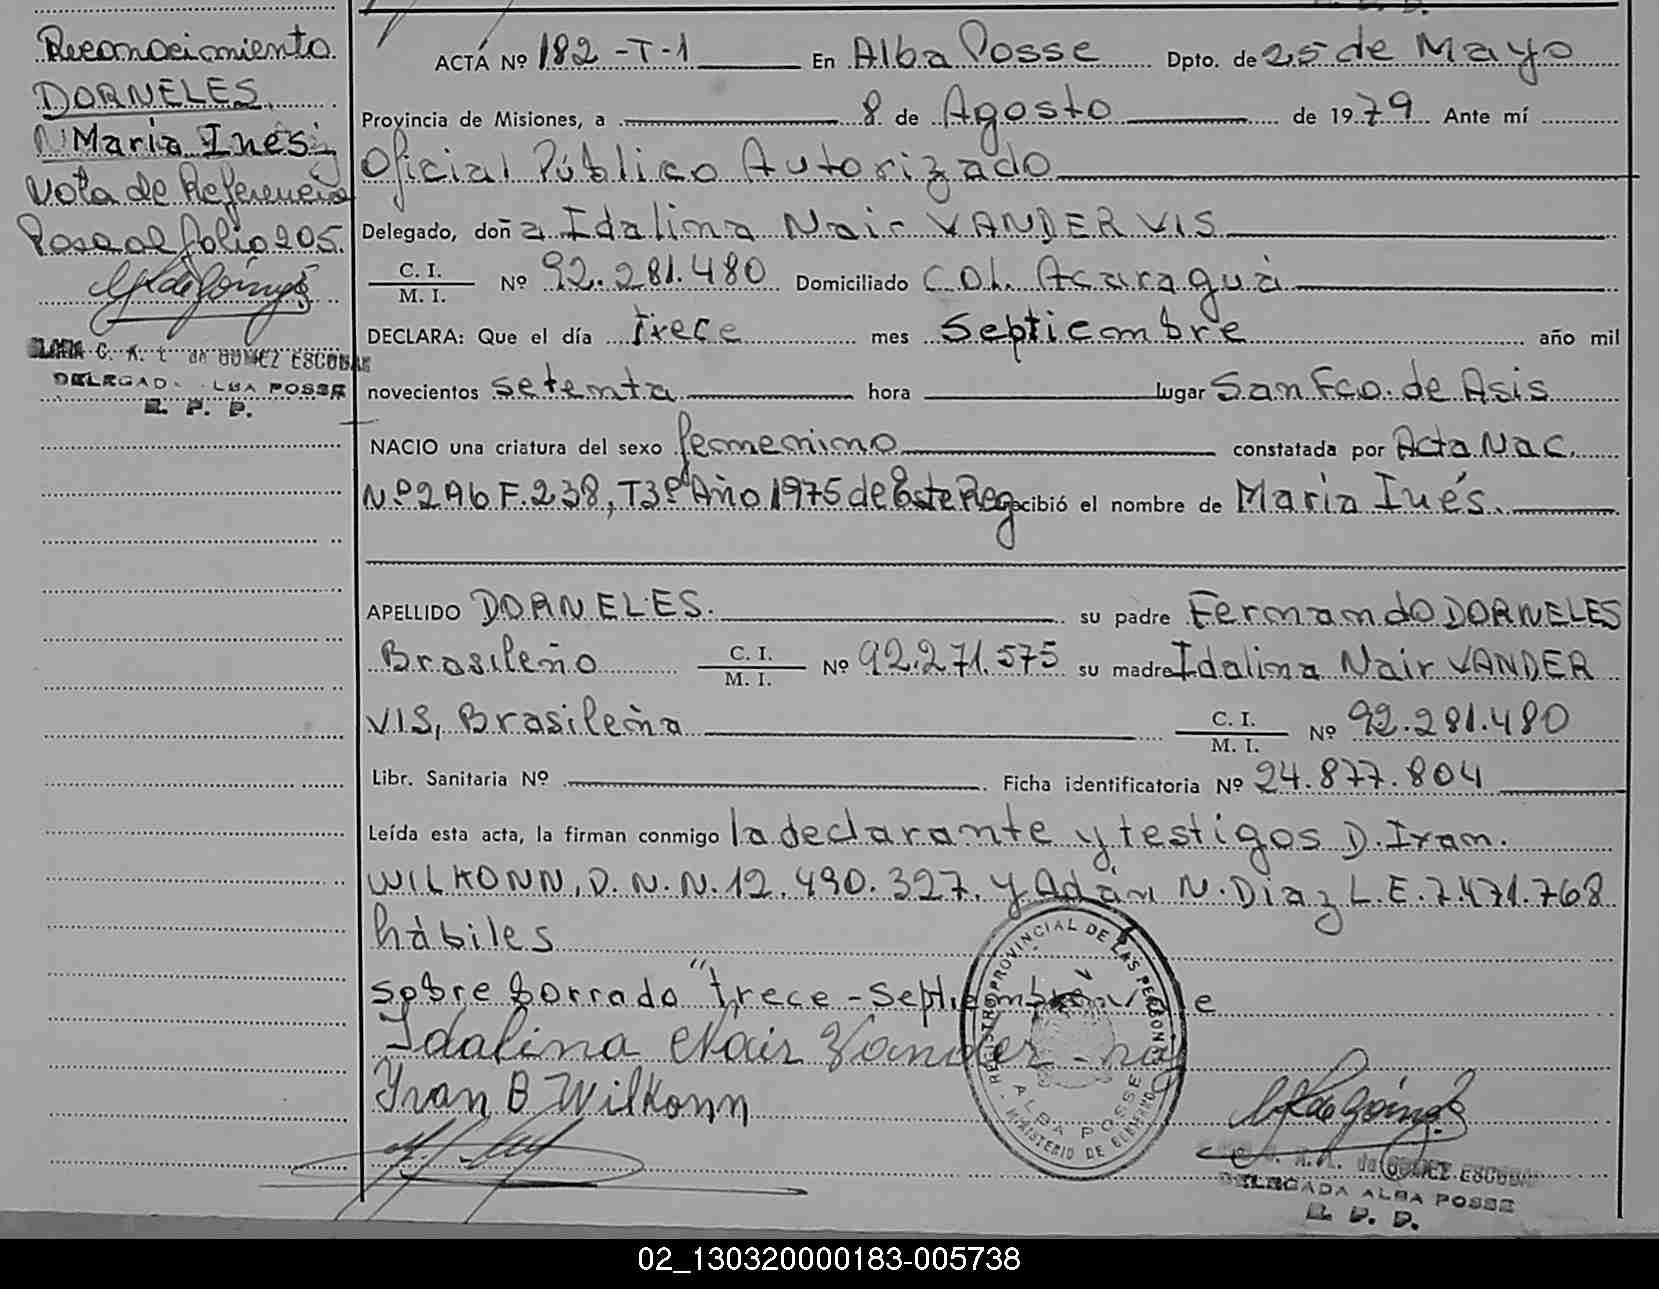 Reconocimiento
DORNELES
María Inés
Nota de Referencia
Pasa al folio 205.
DELEGADA ALBA POSSE
R. P. P.
ACTA Nº 182-T-1 En Alba Posse Dpto. de 25 de Mayo
Provincia de Misiones, a 8 de Agosto de 1979 Ante mí
Oficial Público Autorizado
Delegado, doña Idalina Nair VANDER VIS
C. I. / M. I. Nº 92.281.480 Domiciliado COL. Acaraguá
DECLARA: Que el día trece mes Septiembre año mil
novecientos setenta hora lugar San Fco. de Asis
NACIO una criatura del sexo femenino constatada por Acta Nac.
Nº 296 F. 238, T3º Año 1975 de Este Reg recibió el nombre de María Inés.
APELLIDO DORNELES. su padre Fernando DORNELES
Brasileño C. I. / M. I. Nº 92.271.575 su madre Idalina Nair VANDER
VIS, Brasileña C. I. / M. I. Nº 92.281.480
Libr. Sanitaria Nº Ficha identificatoria Nº 24.877.804
Leída esta acta, la firman conmigo la declarante y testigos D. Ivan.
WILKONN, D.N.N. 12.490.327. y Adán N. Diaz L.E. 7.471.768
hábiles
sobre borrado "trece - Septiembre
Idalina Nair Vander
Ivan B Wilkonn
REGISTRO PROVINCIAL DE LAS PERSONAS
ALBA POSSE
MINISTERIO DE GOBIERNO
de GOMEZ ESCOBAR
DELEGADA ALBA POSSE
R. P. P.
02_130320000183-005738